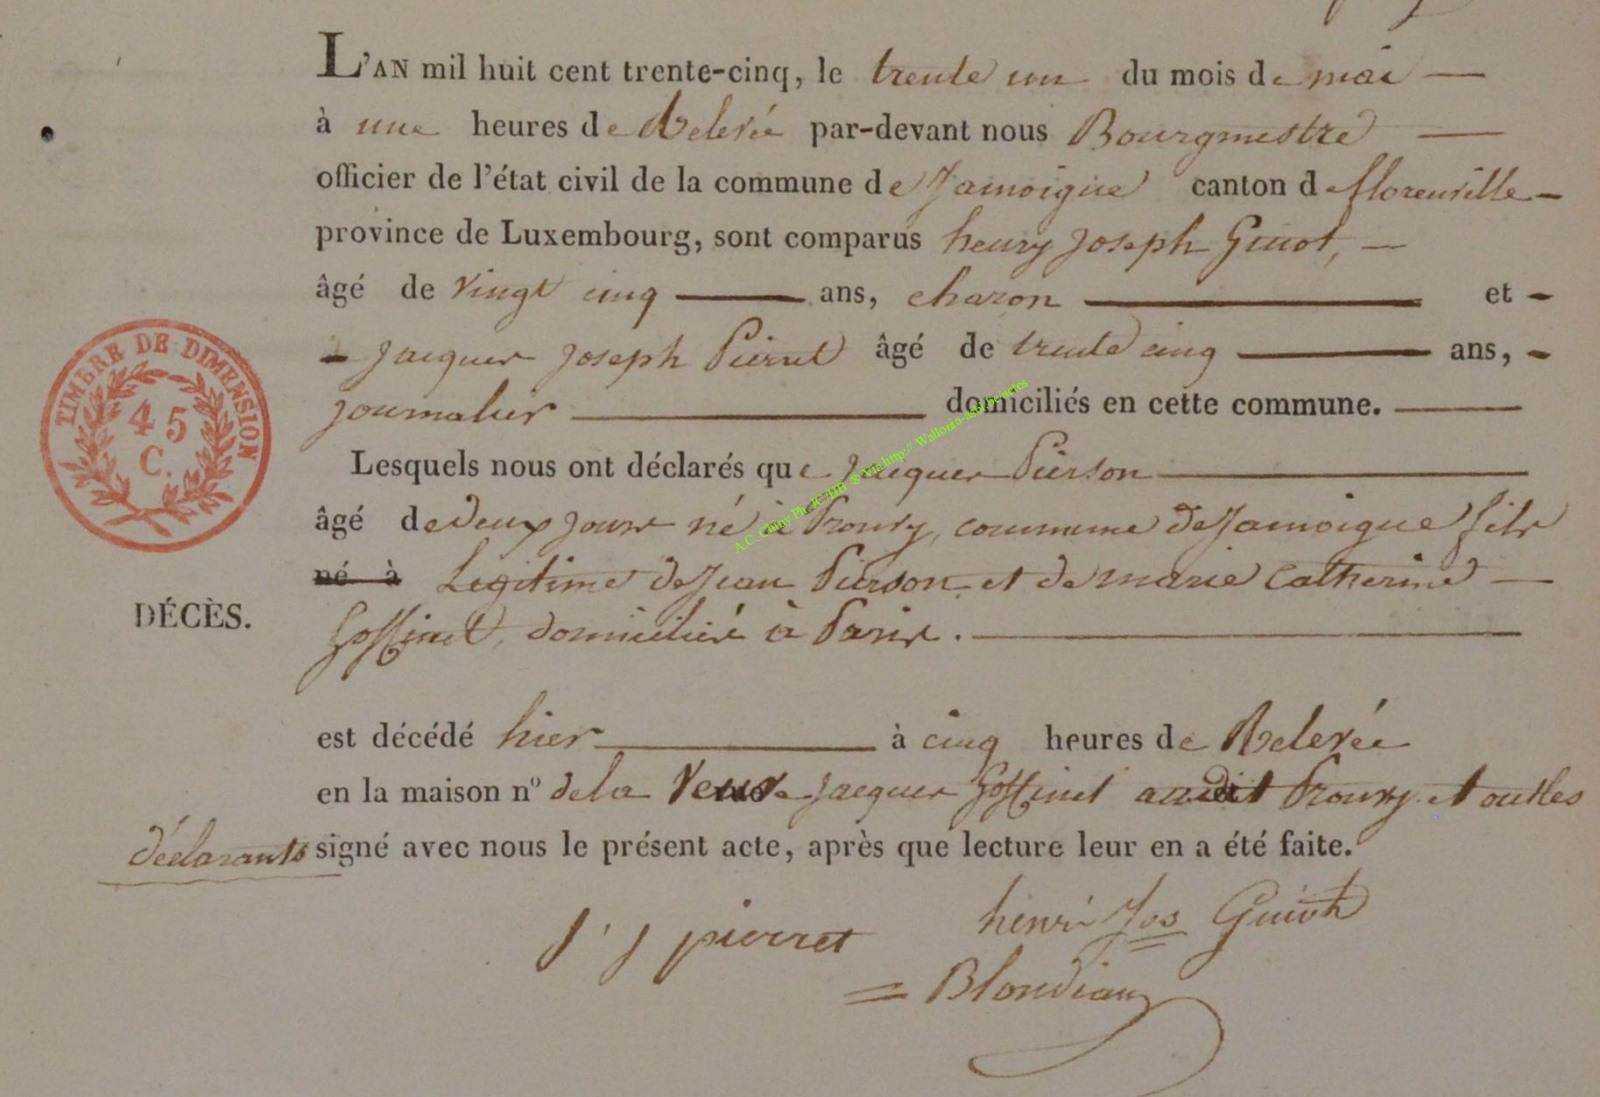 L'AN mil huit cent trente-cinq, le trente un du mois de mai
à une heures de Relevée par-devant nous Bourgmestre
officier de l'état civil de la commune de Jamoigne canton de florenville
province de Luxembourg, sont comparus henry joseph Guiot,
âgé de vingt cinq ans, charon et
jacques joseph Pierret âgé de trente cinq ans,
journalier domiciliés en cette commune.
Lesquels nous ont déclarés que jacques Pierson
âgé de deux jours né à Prouvy, commune de Jamoigne fils
né à Legitime de Jean Pierson et de marie Catherine
Goffinet, domiciliés à Paris.
est décédé hier à cinq heures de Relevée
en la maison n° de la Veuve jacques Goffinet audit Prouvy. et ont les
déclarants signé avec nous le présent acte, après que lecture leur en a été faite.
j j pierret henri Jos Guioth
Blondiaux
DÉCÈS.
TIMBRE DE DIMENSION
45
C.